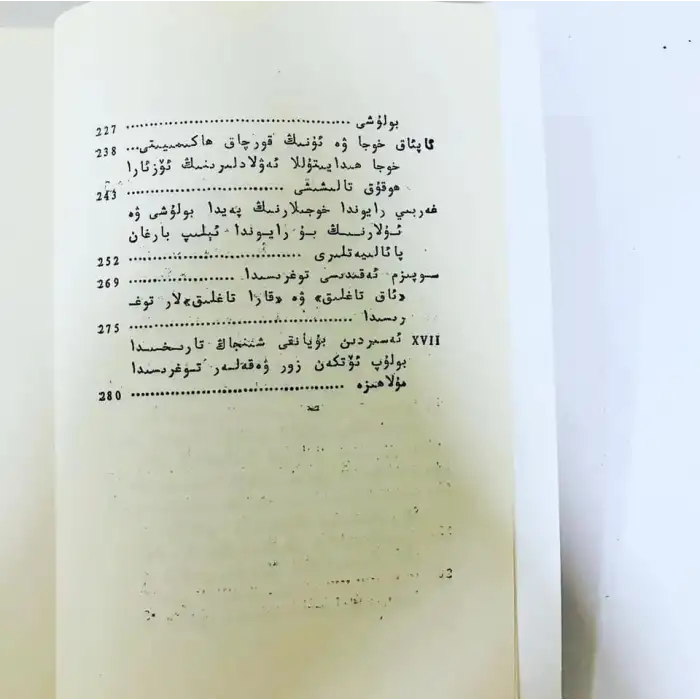 بولۇشى ........................................ 227
ئاپئاق خوجا ۋە ئۇنىڭ قورچاق ھاكىمىيىتى... 238
خوجا ھىدايىتۇللا ئەۋلادلىرىنىڭ ئۆزئارا
ھوقۇق تالىشىشى ........................ 243
غەربىي رايوندا خوجىلارنىڭ پەيدا بولۇشى ۋە
ئۇلارنىڭ بۇ رايوندا ئېلىپ بارغان
پائالىيەتلىرى .............................. 252
سوپىزم ئەقىدىسى توغرىسىدا ................... 269
«ئاق تاغلىق» ۋە «قارا تاغلىق»لار توغـ
رىسىدا ........................................ 275
XVII ئەسىردىن بۇيانقى شىنجاڭ تارىخىدا
بولۇپ ئۆتكەن زور ۋەقەلەر توغرىسىدا
مۇلاھىزە ..................................... 280